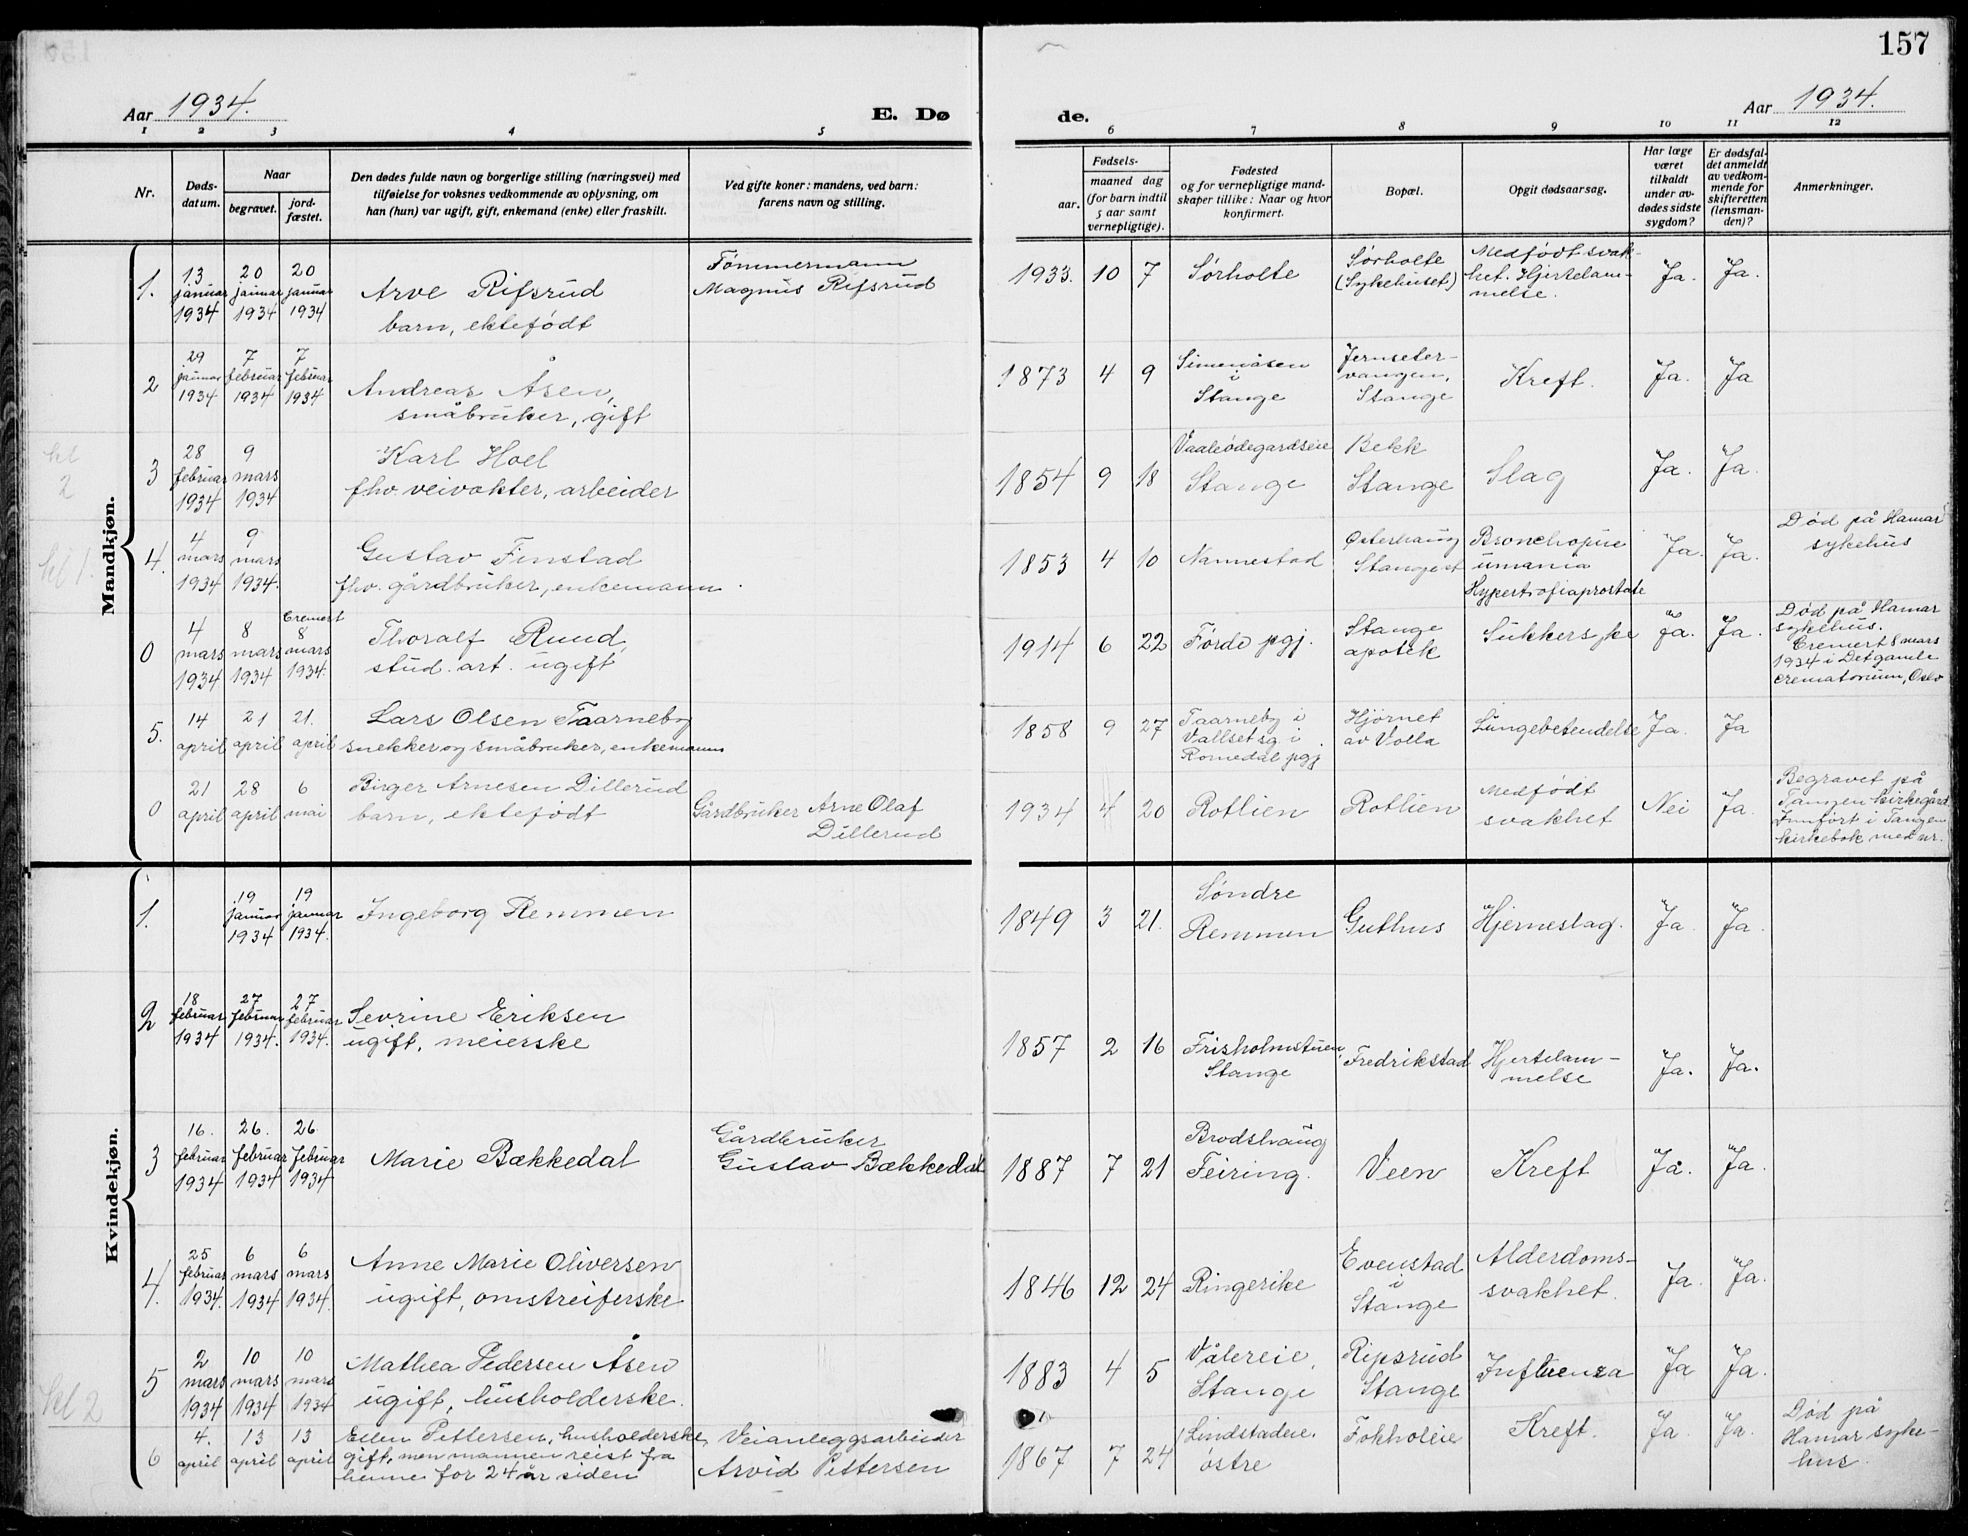 157
Aar 1934.
E. Dø
de.
Aar 1934.
1 2 3 4 5 6 7 8 9 10 11 12
Nr.
Døds-
datum.
Naar
begravet.
jord-
fæstet.
Den dødes fulde navn og borgerlige stilling (næringsvei) med
tilføielse for voksnes vedkommende av oplysning, om
han (hun) var ugift, gift, enkemand (enke) eller fraskilt.
Ved gifte koner: mandens, ved barn:
farens navn og stilling.
Fødsels-
aar.
maaned dag
(for barn indtil
5 aar samt
vernepligtige).
Fødested
og for vernepligtige mand-
skaper tillike: Naar og hvor
konfirmert.
Bopæl.
Opgit dødsaarsag.
Har læge
været
tilkaldt
under av-
dødes sidste
sygdom?
Er dødsfal-
det anmeldt
av vedkom-
mende for
skifteretten
(lensman-
den)?
Anmerkninger.
Mandkjøn.
1.
13 januar 1934
20 januar 1934
20 januar 1934
Arve Rifsrud
barn, ektefødt
Tømmermann
Magnus Rifsrud
1933. 10 7
Sørholte
Sørholte
(Sykehuset)
Medfødt svak-
het. Hjertelam-
melse.
Ja. Ja.
2
29 januar 1934
7 februar 1934
7 februar 1934
Andreas Åsen,
småbruker, gift
1873 4 9
Simenåsen
i
Stange
Jernseter-
vangen,
Stange
Kreft.
Ja. Ja
kl
2
3
28 februar 1934
9 mars 1934
Karl Hoel
fhv. veivokter, arbeider
1854 9 18
Vaaleødegardseie
Stange
Bekk
Stange
Slag
Ja. Ja.
kl 1.
4.
4 mars 1934
9 mars 1934.
Gustav Finstad
fhv. gårdbruker, enkemann.
1853 4 10
Nannestad
Østerhaug
Stange
Bronchopne
umania
Hypertrofiaprostate
Ja. Ja.
Død på Hamar
sykehus
0
4 mars 1934
8 mars 1934
Cremert
8 mars 1934.
Thoralf Ruud,
stud. art. ugift
1914 6 22
Førde pgj.
Stange
apotek
Sukkersyke
Ja. Ja.
Død på Hamar
sykehus.
Cremert 8 mars
1934 i Det gamle
crematorium, Oslo
5.
14 april
21 april
21. april
Lars Olsen Taarneby
snekker og småbruker, enkemann
1858 9 27
Taarneby i
Vallset sg. i
Romedal pgj.
Hjørnet
av Volla
Lungebetendelse
Ja. Ja
0
21 april
28 april
6 mai
Birger Arnesen Dillerud
barn, ektefødt
Gårdbruker Arne Olaf
Dillerud
1934 4 20
Rotlien
Rotlien
Medfødt
svakhet
Nei Ja.
Begravet på
Tangen kirkegård.
Innført i Tangen
kirkebok med nr.
Kvindekjøn.
1.
19 januar 1934
19 januar 1934.
Ingeborg Remmen
1849 3 21.
Søndre
Remmen
Guthus
Hjerneslag.
Ja Ja.
2
18 februar 1934
27 februar 1934.
27 februar 1934.
Sevrine Eriksen
ugift, meierske
1857 2 16
Frisholmstuen
Stange
Fredrikstad
Hjertelam-
melse
Ja. Ja.
3
16. februar 1934
26. februar 1934
26. februar 1934
Marie Bækkedal
Gårdbruker
Gustav Bækkedal
1887 7 21
Brodshaug
Feiring.
Veen
Kreft
Ja. Ja.
4.
25 februar 1934.
6 mars 1934
6 mars 1934.
Anne Marie Oliversen
ugift, omstreiferske
1846 12 24
Ringerike
Evenstad
i
Stange
Alderdoms-
svakhet.
Ja. Ja.
5
2 mars 1934
10 mars 1934
10 mars 1934
Mathea Pedersen Åsen
ugift, husholderske.
1883 4 5
Våleeie,
Stange
Ripsrud
Stange
Influenza
Ja Ja.
kl 2
6
4. april
13 april
13 april
Ellen Pettersen, husholderske,
gift, men mannen reist fra
henne for 24 år siden
Veianleggsarbeider
Arvid Pettersen
1867 7 24
Lindstadeie.
østre
Fokholeie
Kreft.
Ja. Ja.
Død på
Hamar syke-
hus.